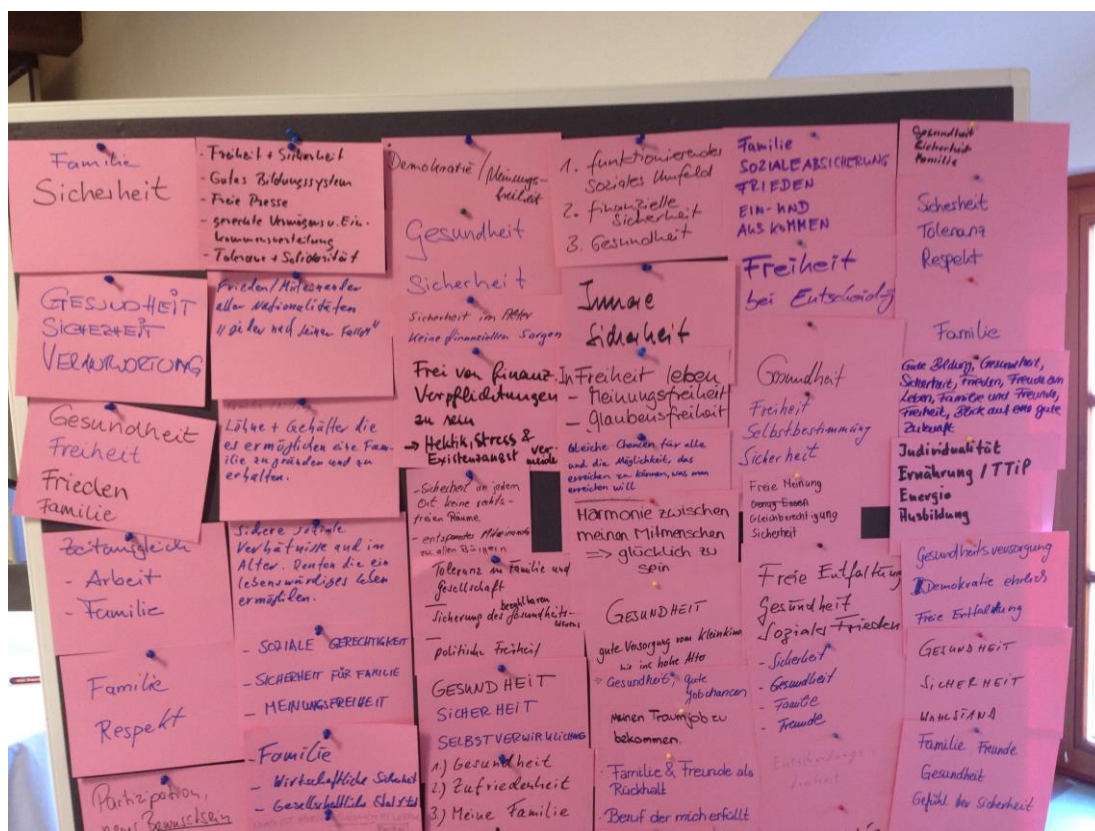 Familie
Sicherheit
GESUNDHEIT
SICHERHEIT
VERANTWORTUNG
Gesundheit
Freiheit
Frieden
Familie
Zeitausgleich
- Arbeit
- Familie
Familie
Respekt
Partizipation,
neues Bewusstsein
- Freiheit + Sicherheit
- Gutes Bildungssystem
- Freie Presse
- gerechte Vermögens u. Ein-
kommensverteilung
- Toleranz + Solidarität
Frieden/Miteinander
aller Nationalitäten
"jeder nach seiner Fasson"
Löhne + Gehälter die
es ermöglichen eine Fam-
ilie zu gründen und zu
erhalten.
Sichere soziale
Verhältnisse und im
Alter. Renten die ein
lebenswürdiges Leben
ermöglichen.
- SOZIALE GERECHTIGKEIT
- SICHERHEIT FÜR FAMILIE
- MEINUNGSFREIHEIT
- Familie
- Wirtschaftliche Sicherheit
- Gesellschaftliche
Demokratie/Meinungs-
freiheit
Gesundheit
Sicherheit
Sicherheit im Alter
keine finanziellen Sorgen
Frei von finanz.
Verpflichtungen
zu sein
→ Hektik, Stress &
Existenzangst ver-
meide
- Sicherheit an jedem
Ort keine rechts-
freien Räume
- entspanntes Miteinander
zu allen Bürgern
Toleranz in Familie und
Gesellschaft
Sicherung des bezahlbaren Gesundheits-
wesens
politische Freiheit
GESUNDHEIT
SICHERHEIT
SELBSTVERWIRKLICHUNG
1.) Gesundheit
2.) Zufriedenheit
3.) Meine Familie
1. funktionierendes
Soziales Umfeld
2. finanzielle
Sicherheit
3. Gesundheit
Innere
Sicherheit
In Freiheit leben
- Meinungsfreiheit
- Glaubensfreiheit
Gleiche Chancen für alle
und die Möglichkeit, das
erreichen zu können, was man
erreichen will
Harmonie zwischen
meinen Mitmenschen
⇒ glücklich zu
sein
GESUNDHEIT
gute Versorgung vom Kleinkind
bis ins hohe Alter
Gesundheit, gute
Jobchancen
Meinen Traumjob zu
bekommen.
- Familie & Freunde als
Rückhalt
- Beruf der mich erfüllt
Familie
SOZIALE ABSICHERUNG
FRIEDEN
EIN- UND
AUSKOMMEN
Freiheit
bei Entscheidg
Gesundheit
Freiheit
Selbstbestimmung
Sicherheit
Freie Meinung
Genug Essen
Gleichberechtigung
Sicherheit
Freie Entfaltung
Gesundheit
Sozialer Frieden
- Sicherheit
- Gesundheit
- Familie
- Freunde
Entscheidungs-
freiheit
Gesundheit
Sicherheit
Familie
Sicherheit
Toleranz
Respekt
Familie
Gute Bildung, Gesundheit,
Sicherheit, Frieden, Freude am
Leben, Familie und Freunde,
Freiheit, Blick auf eine gute
Zukunft
Individualität
Ernährung / TTiP
Energie
Ausbildung
Gesundheitsversorgung
Demokratie ehrlich
Freie Entfaltung
GESUNDHEIT
SICHERHEIT
WOHLSTAND
Familie Freunde
Gesundheit
Gefühl der Sicherheit